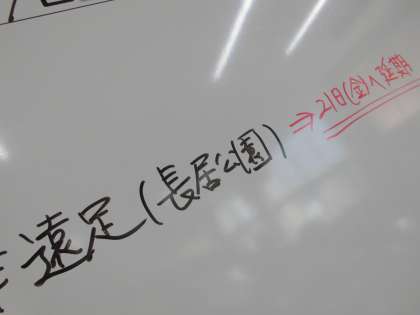 遠足(長居公園)⇒21日(金)へ延期